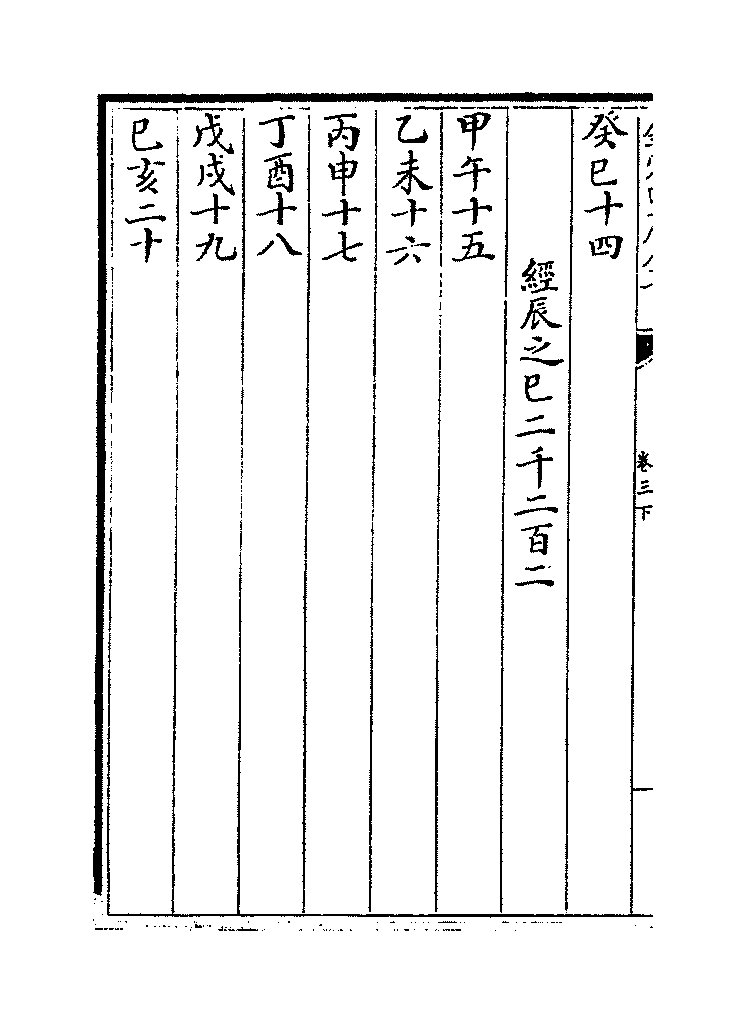 癸巳十四
經辰之巳二千二百二
甲午十五
乙未十六
丙申十七
丁酉十八
戊戌十九
己亥二十
卷三下